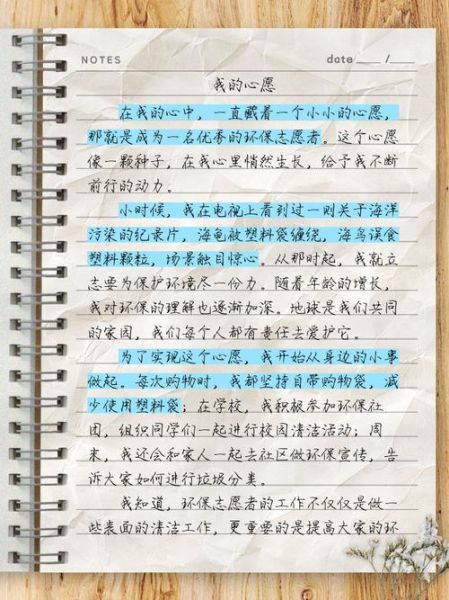 NOTES date ____ /____
我的心愿
在我的心中，一直藏着一个小小的心愿，
那就是成为一名优秀的环保志愿者。这个心愿
像一颗种子，在我心里悄然生长，给予我不断
前行的动力。
小时候，我在电视上看到过一则关于海洋
污染的纪录片，海龟被塑料袋缠绕，海鸟误食
塑料颗粒，场景触目惊心。从那时起，我就立
志要为保护环境尽一份力。随着年龄的增长，
我对环保的理解也逐渐加深。地球是我们共同
的家园，我们每个人都有责任去爱护它。
为了实现这个心愿，我开始从身边的小事
做起。每次购物时，我都坚持自带购物袋，减
少使用塑料袋；在学校，我积极参加环保社
团，组织同学们一起进行校园清洁活动；周
末，我还会和家人一起去社区做环保宣传，告
诉大家如何进行垃圾分类。
我知道，环保志愿者的工作不仅仅是做一
些表面的清洁工作，更重要的是提高大家的环